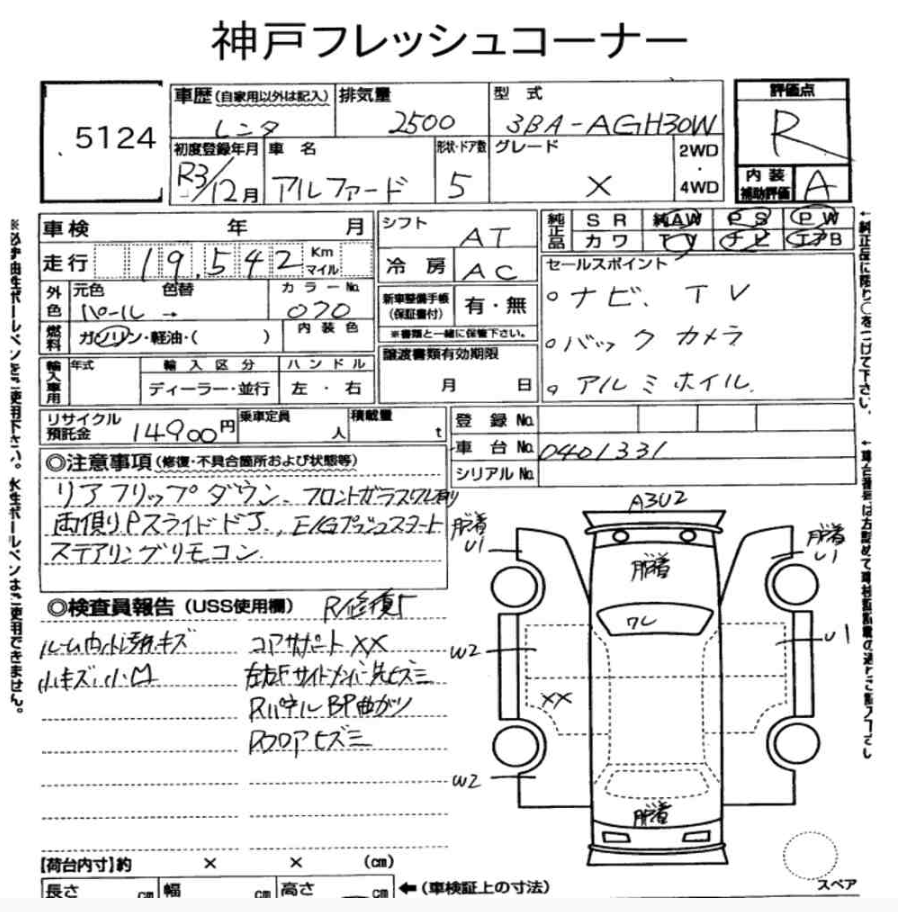 神戸フレッシュコーナー
5124
車歴 (自家用以外は記入) 排気量 型式 評価点
レンタ 2500 3BA-AGH30W R
初度登録年月 車名 形状・ドア数 グレード 2WD・4WD 内装補助評価
R3/12月 アルファード 5 × A
車検 年 月 シフト AT 純正品 SR 純AW PS PW
カワ TV ナビ エアB
走行 19,542 Km マイル 冷房 AC セールスポイント
外色 元色 色替 カラーNo.
パール → 070
新車整備手帳(保証書付) 有・無
※書類と一緒に保管下さい。
。ナビ、TV
。バックカメラ
。アルミホイル
燃料 ガソリン・軽油・( ) 内装色
譲渡書類有効期限
月 日
輸入車用 年式 輸入区分 ハンドル
ディーラー・並行 左・右
リサイクル預託金 14900円 乗車定員 人 積載量 t
登録No.
車台No. 0401331
シリアルNo.
◎注意事項 (修復・不具合箇所および状態等)
リアフリップダウン、フロントガラスワレ有り
両側Pスライドドア、E/Gプッシュスタート
ステアリングリモコン
◎検査員報告 (USS使用欄) R修復有
ルーム内小汚れキズ
小キズ、小凹
コアサポートXX
左右Fサイドメンバー先ヒズミ
RパネルBP曲がり
Rフロアヒズミ
A3U2
脱着
U1
脱着
脱着
U1
ワレ
W2
U1
XX
W2
脱着
スペア
【荷台内寸】約 × × (cm)
長さ cm 幅 cm 高さ cm ←(車検証上の寸法)
※必ず油性ボールペンをご使用下さい。水性ボールペンはご使用できません。
←純正品に限り○をつけて下さい。